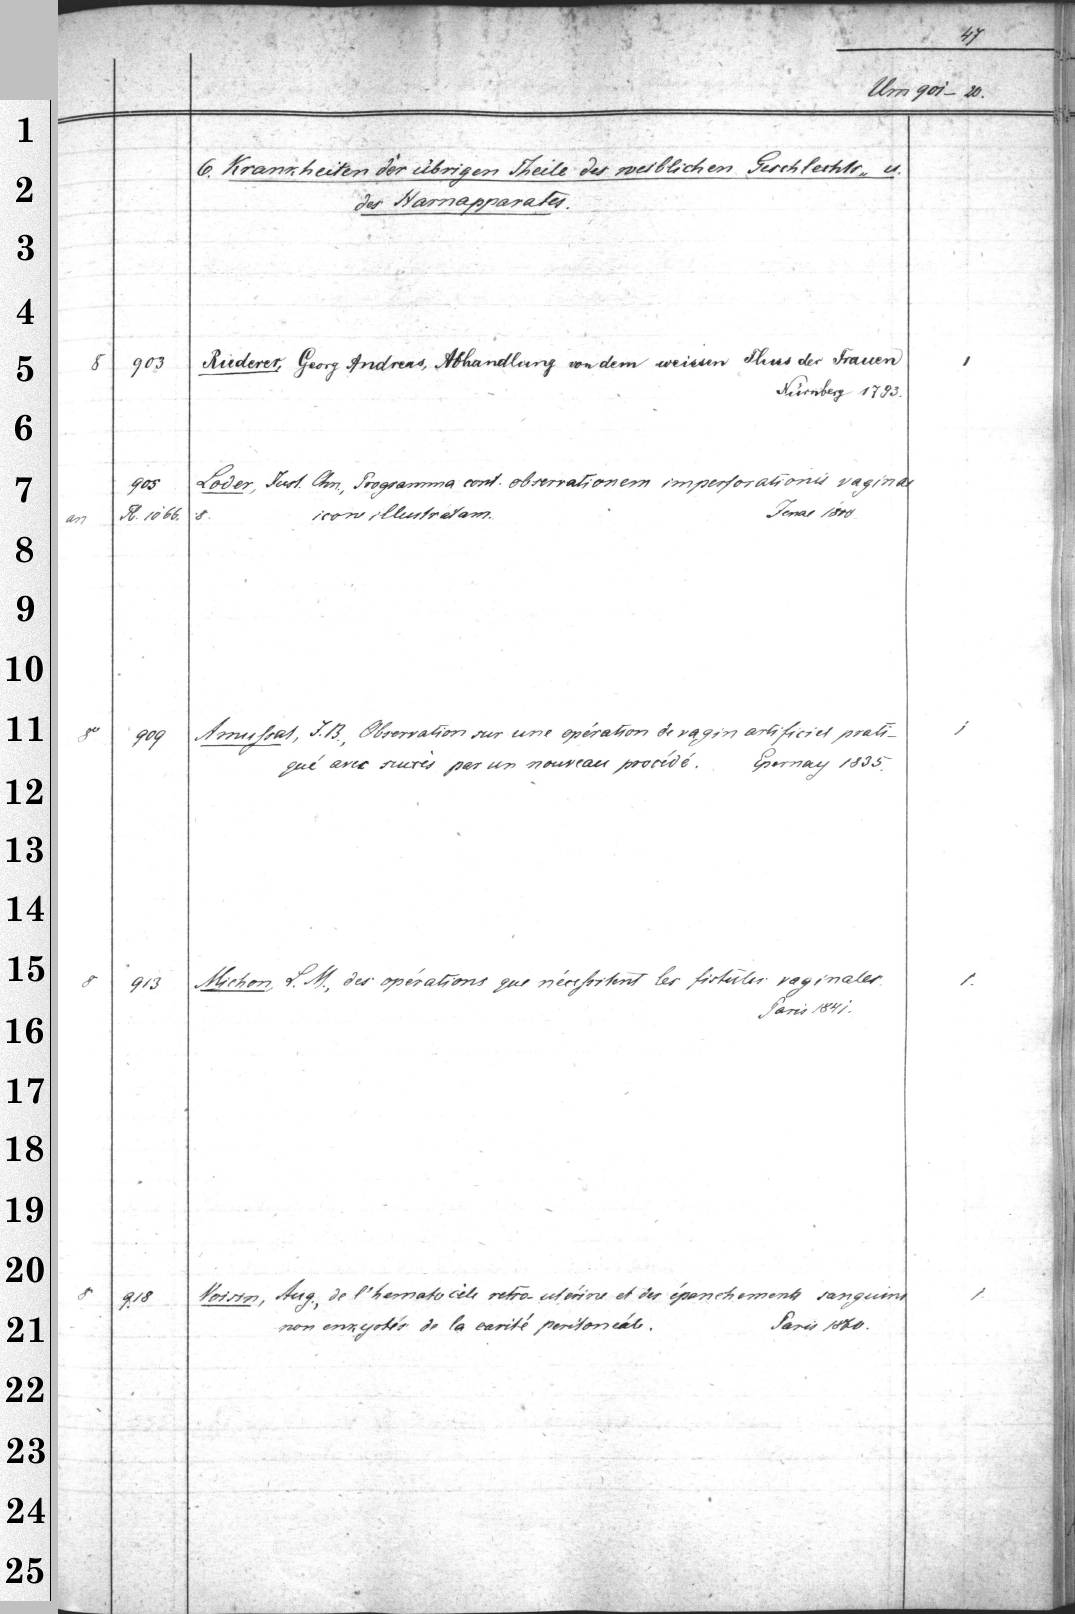 47
Um 901-20.
6. Krankheiten der übrigen Theile des weiblichen Geschlechts- u.
des Harnapparates.
8 903 Riederer, Georg Andreas, Abhandlung von dem weissen Fluss der Frauen 1
Nürnberg 1793.
905 Loder, Just. Chr., Programma cont. observationem imperforationis vaginae
an Pl. 1066. 8. icone illustratam. Jenae 1800
8° 909 Amussat, J.B., Observation sur une opération de vagin artificiel prati-
qué avec succès par un nouveau procédé. Epernay 1835. 1
8 913 Michon, L. M., des opérations que nécessitent les fistules vaginales. 1.
Paris 1841.
8 918 Voisin, Aug., de l'hematocèle retro-utérine et des épanchements sanguins 1.
non enkystés de la cavité peritonéale. Paris 1860.
1
2
3
4
5
6
7
8
9
10
11
12
13
14
15
16
17
18
19
20
21
22
23
24
25